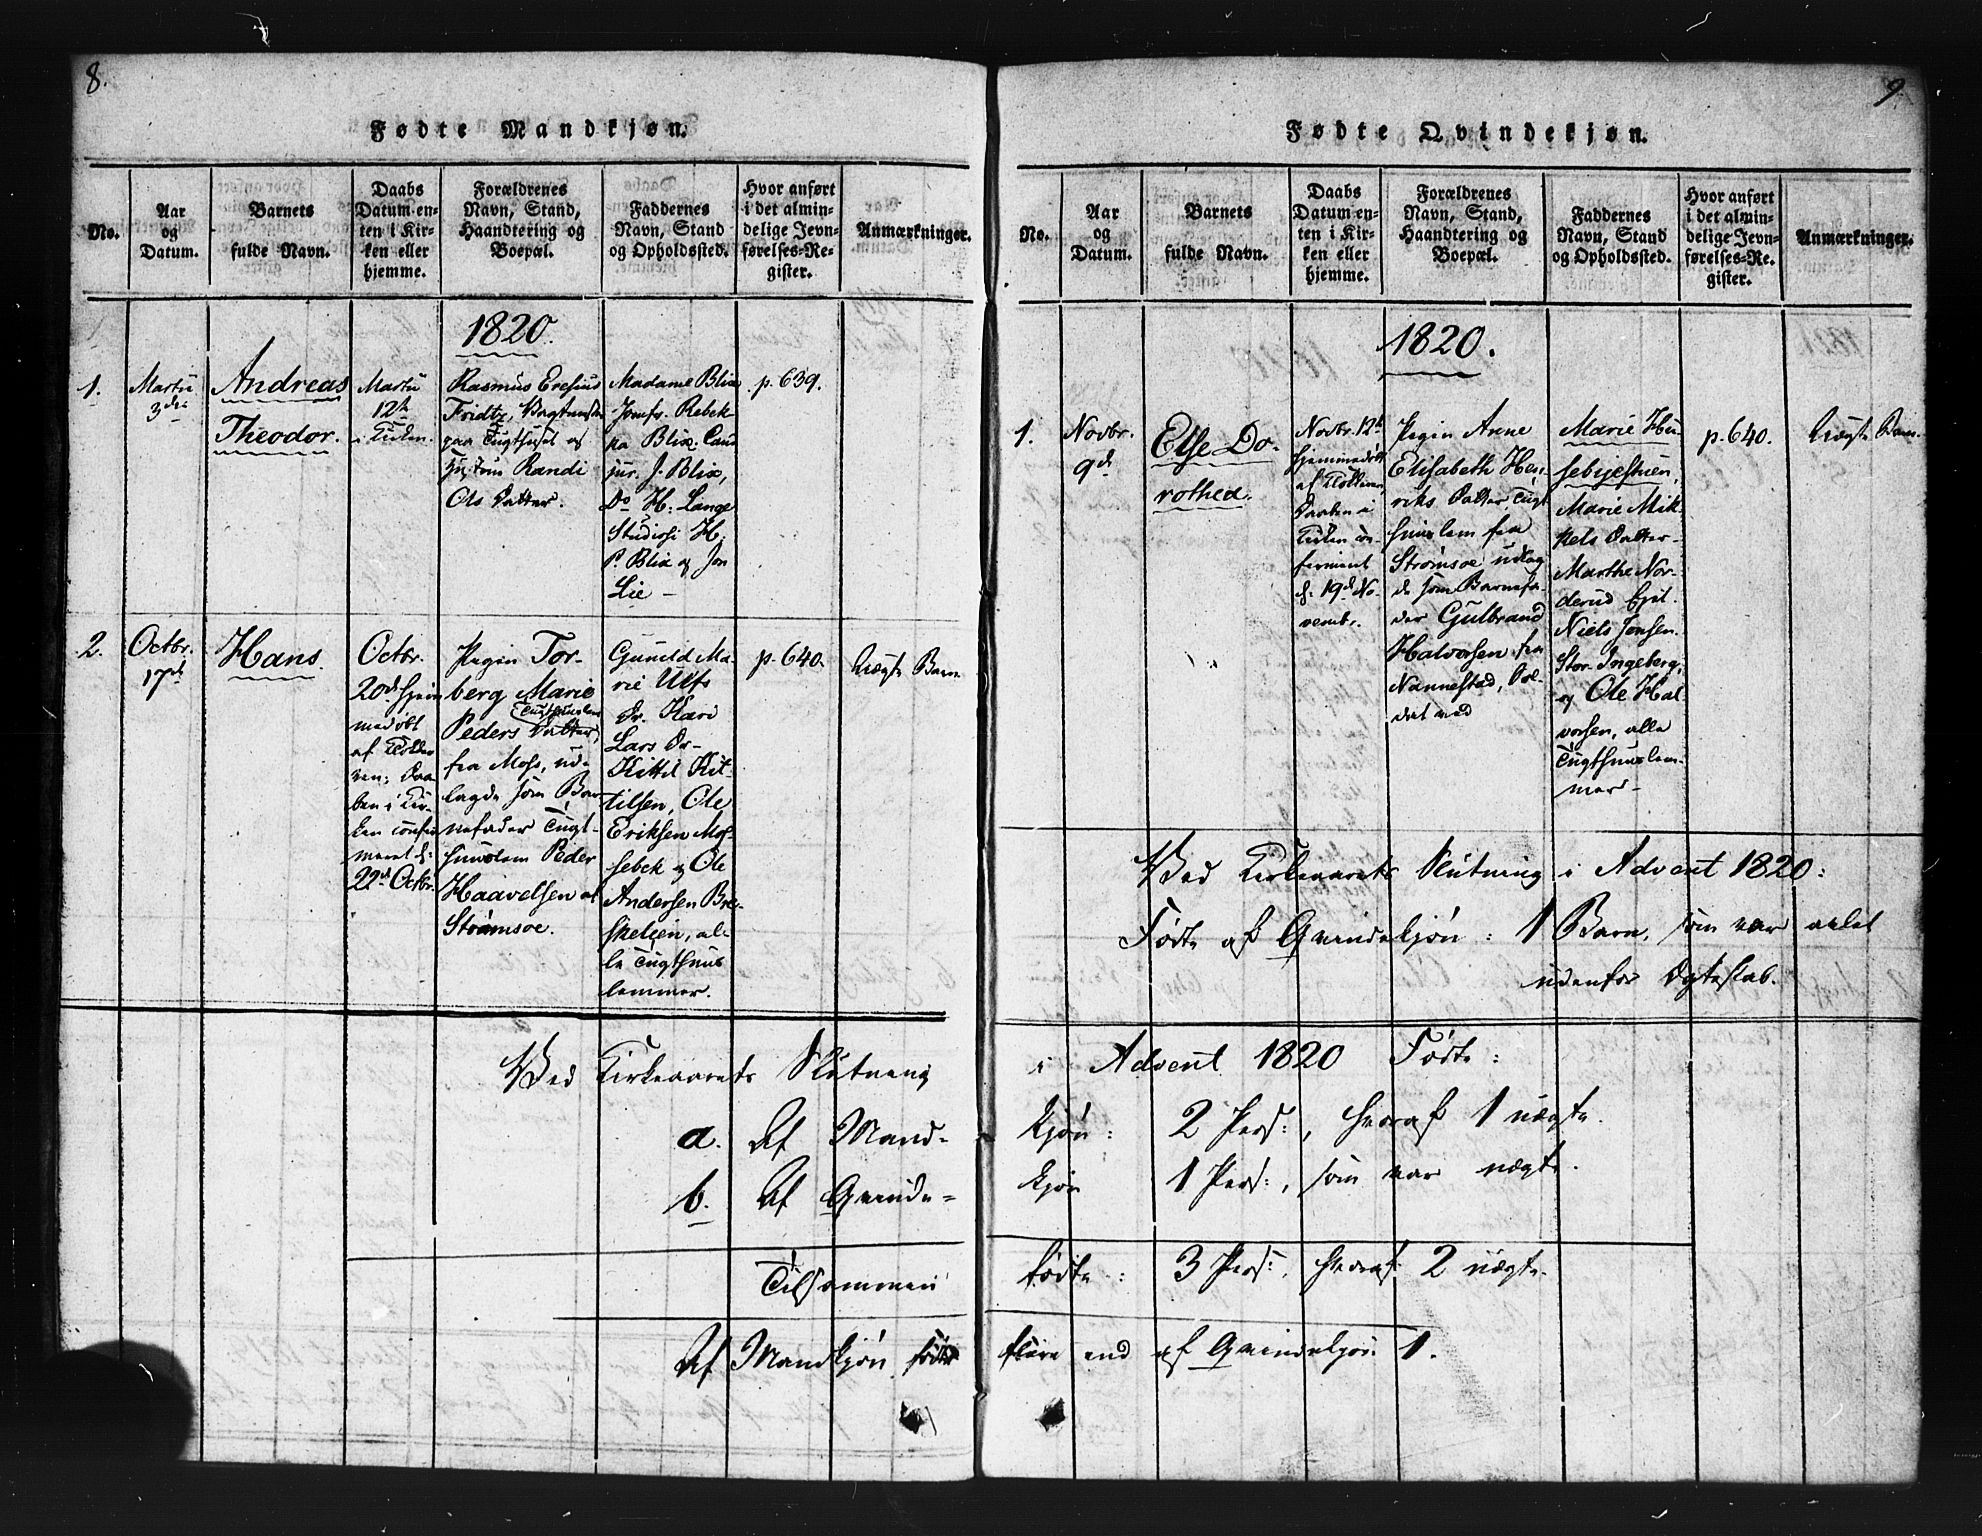 8.
Fødte Mandkjøn.
No.
Aar
og
Datum.
Barnets
fulde Navn.
Daabs
Datum en-
ten i Kir-
ken eller
hjemme.
Forældrenes
Navn, Stand,
Haandtering og
Boepæl.
Faddernes
Navn, Stand
og Opholdssted.
Hvor anført
i det almin-
delige Jevn-
førelses-Re-
gister.
Anmærkninger.
1820.
1.
Martii
3die
Andreas
Theodor.
Martii
12te
i Kirken.
Rasmus Eresius
Fridtz,
paa Tugthuset og
Hustrue Randi
Ols Datter.
Madame Blix
Jomfr. Rebek-
ka Blix. Cand
jur. J. Blix,
Do H: Lange
Studiosi H.
P. Blix og Jon
Lie –
p. 639.
2.
Octbr.
17de
Hans.
Octbr.
20de hjem
medøbt
af Klokke
ren; Daa
ben i Kir-
ken confir
meret d:
22de Octbr.
Pigen Tor-
berg Marie
Peders Datter, Tugthuuslem
fra Moss, ud-
lagde som Bar
nefader Tugt-
huuslem Peder
Haavelsen af
Strømsoe.
Gunild Ma-
rie Ulfs
Dr. Kari
Lars Dr-
Kittil Kit-
tilsen, Ole
Eriksen Mos-
sebek og Ole
Andersen Bre-
skelien, al-
le Tugthuus
lemmer.
p. 640.
Uægte Barn
Ved Kirkeaarets Slutning
a. Af Mand-
b. Af Qvinde-
Tilsammen
Af Mandkjøn fødte
9.
Fødte Qvindekjøn.
No.
Aar
og
Datum.
Barnets
fulde Navn.
Daabs
Datum en-
ten i Kir-
ken eller
hjemme.
Forældrenes
Navn, Stand,
Haandtering og
Boepæl.
Faddernes
Navn, Stand
og Opholdssted.
Hvor anført
i det almin-
delige Jevn-
førelses-Re-
gister.
Anmærkninger.
1820.
1.
Novbr.
9de
Else Do-
rothea.
Novbr. 12te
hjemmedøbt
af Klokkeren,
Daaben i
Kirken con
firmeret
d: 19de No-
vembr.
Pigen Anne
Elisabeth Hen-
riks Datter, Tugt
huuslem fra
Strømsoe udlag
de som Barnefa-
der Gulbrand
Halvorsen fra
Nannestad, Sol-
dat ved
Marie Hu-
sebyestuen,
Marie Mik-
kels Datter-
Marthe Nor-
derud
Niels Jensen
Stor-Ingeberg,
og Ole Hal
vorsen, alle
Tugthuuslem-
mer –
p. 640.
Uægte Barn.
Ved Kirkeaarets Slutning i Advent 1820:
Fødte af Qvindekjøn: 1 Barn, som var avlet
udenfor Ægteskab.
i Advent 1820 Fødte:
kjøn: 2 Pers:, hvoraf 1 uægte.
kjøn 1 Pers:, som var uægte.
fødte: 3 Pers:, hvoraf 2 uægte.
flere end af Qvindekjøn 1.